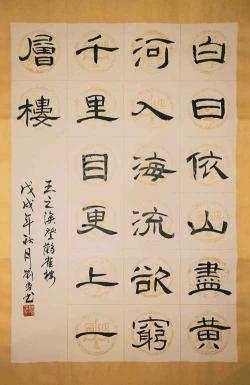 白日依山盡黃
河入海流欲窮
千里目更上一
層樓
王之渙登鸛雀樓
戊戌年秋月